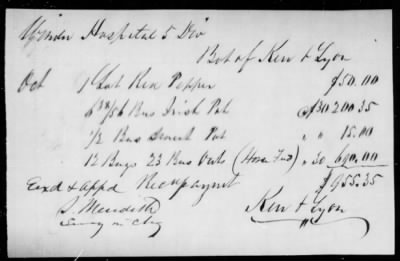 Winder Hospital 5 Div
Bot of Ken & Lyon
Oct 1 Lot Red Pepper $50.00
6 38/56 Bus Irish Pot @ $30 200.35
1/2 Bus Sweet Pot " " 15.00
12 Bags 23 Bus Oats (Horse Feed) " 30 690.00
Exd & appd Rec payment $955.35
S. Meredith Ken & Lyon
Surg in Chg